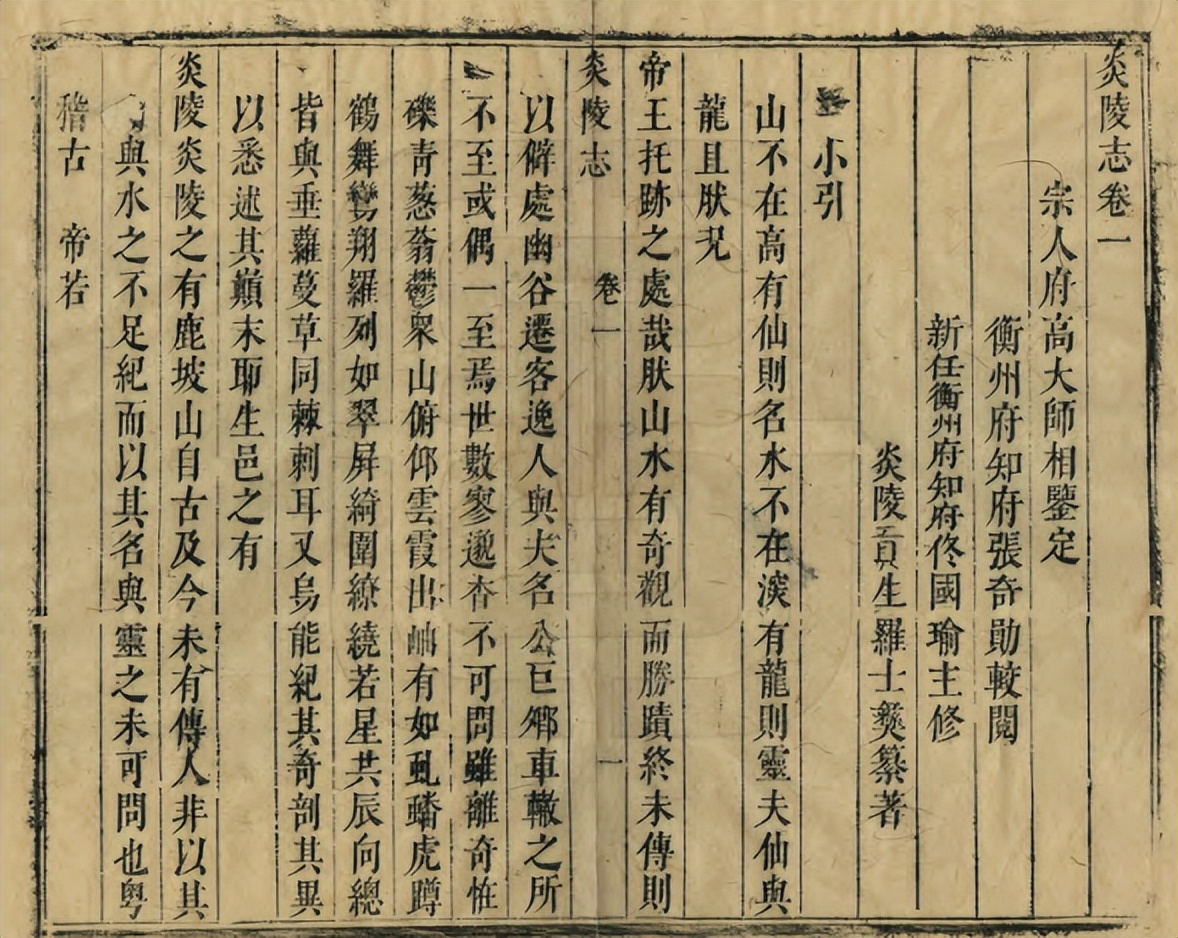 炎陵志卷一
宗人府高大師相鑒定
衡州府知府張奇勛較閱
新任衡州府知府佟國瑜主修
炎陵貢生羅士彝纂著
小引
山不在高有仙則名水不在深有龍則靈夫仙與
龍且肰况
帝王托跡之處哉肰山水有奇觀而勝蹟終未傳則
炎陵志 卷一 一
以僻處幽谷遷客逸人與大名公巨鄉車轍之所
不至或偶一至焉世數寥邈杳不可問雖離奇恠
礫青葱蓊鬱衆山俯仰雲霞出岫有如虬蟠虎蹲
鶴舞鸞翔羅列如翠屏綺圍繚繞若星共辰向總
皆與垂蘿蔓草同棘刺耳又烏能紀其奇剖其異
以悉述其巔末聊生邑之有
炎陵炎陵之有鹿坡山自古及今未有傳人非以其
與水之不足紀而以其名與靈之未可問也粤
稽古 帝若